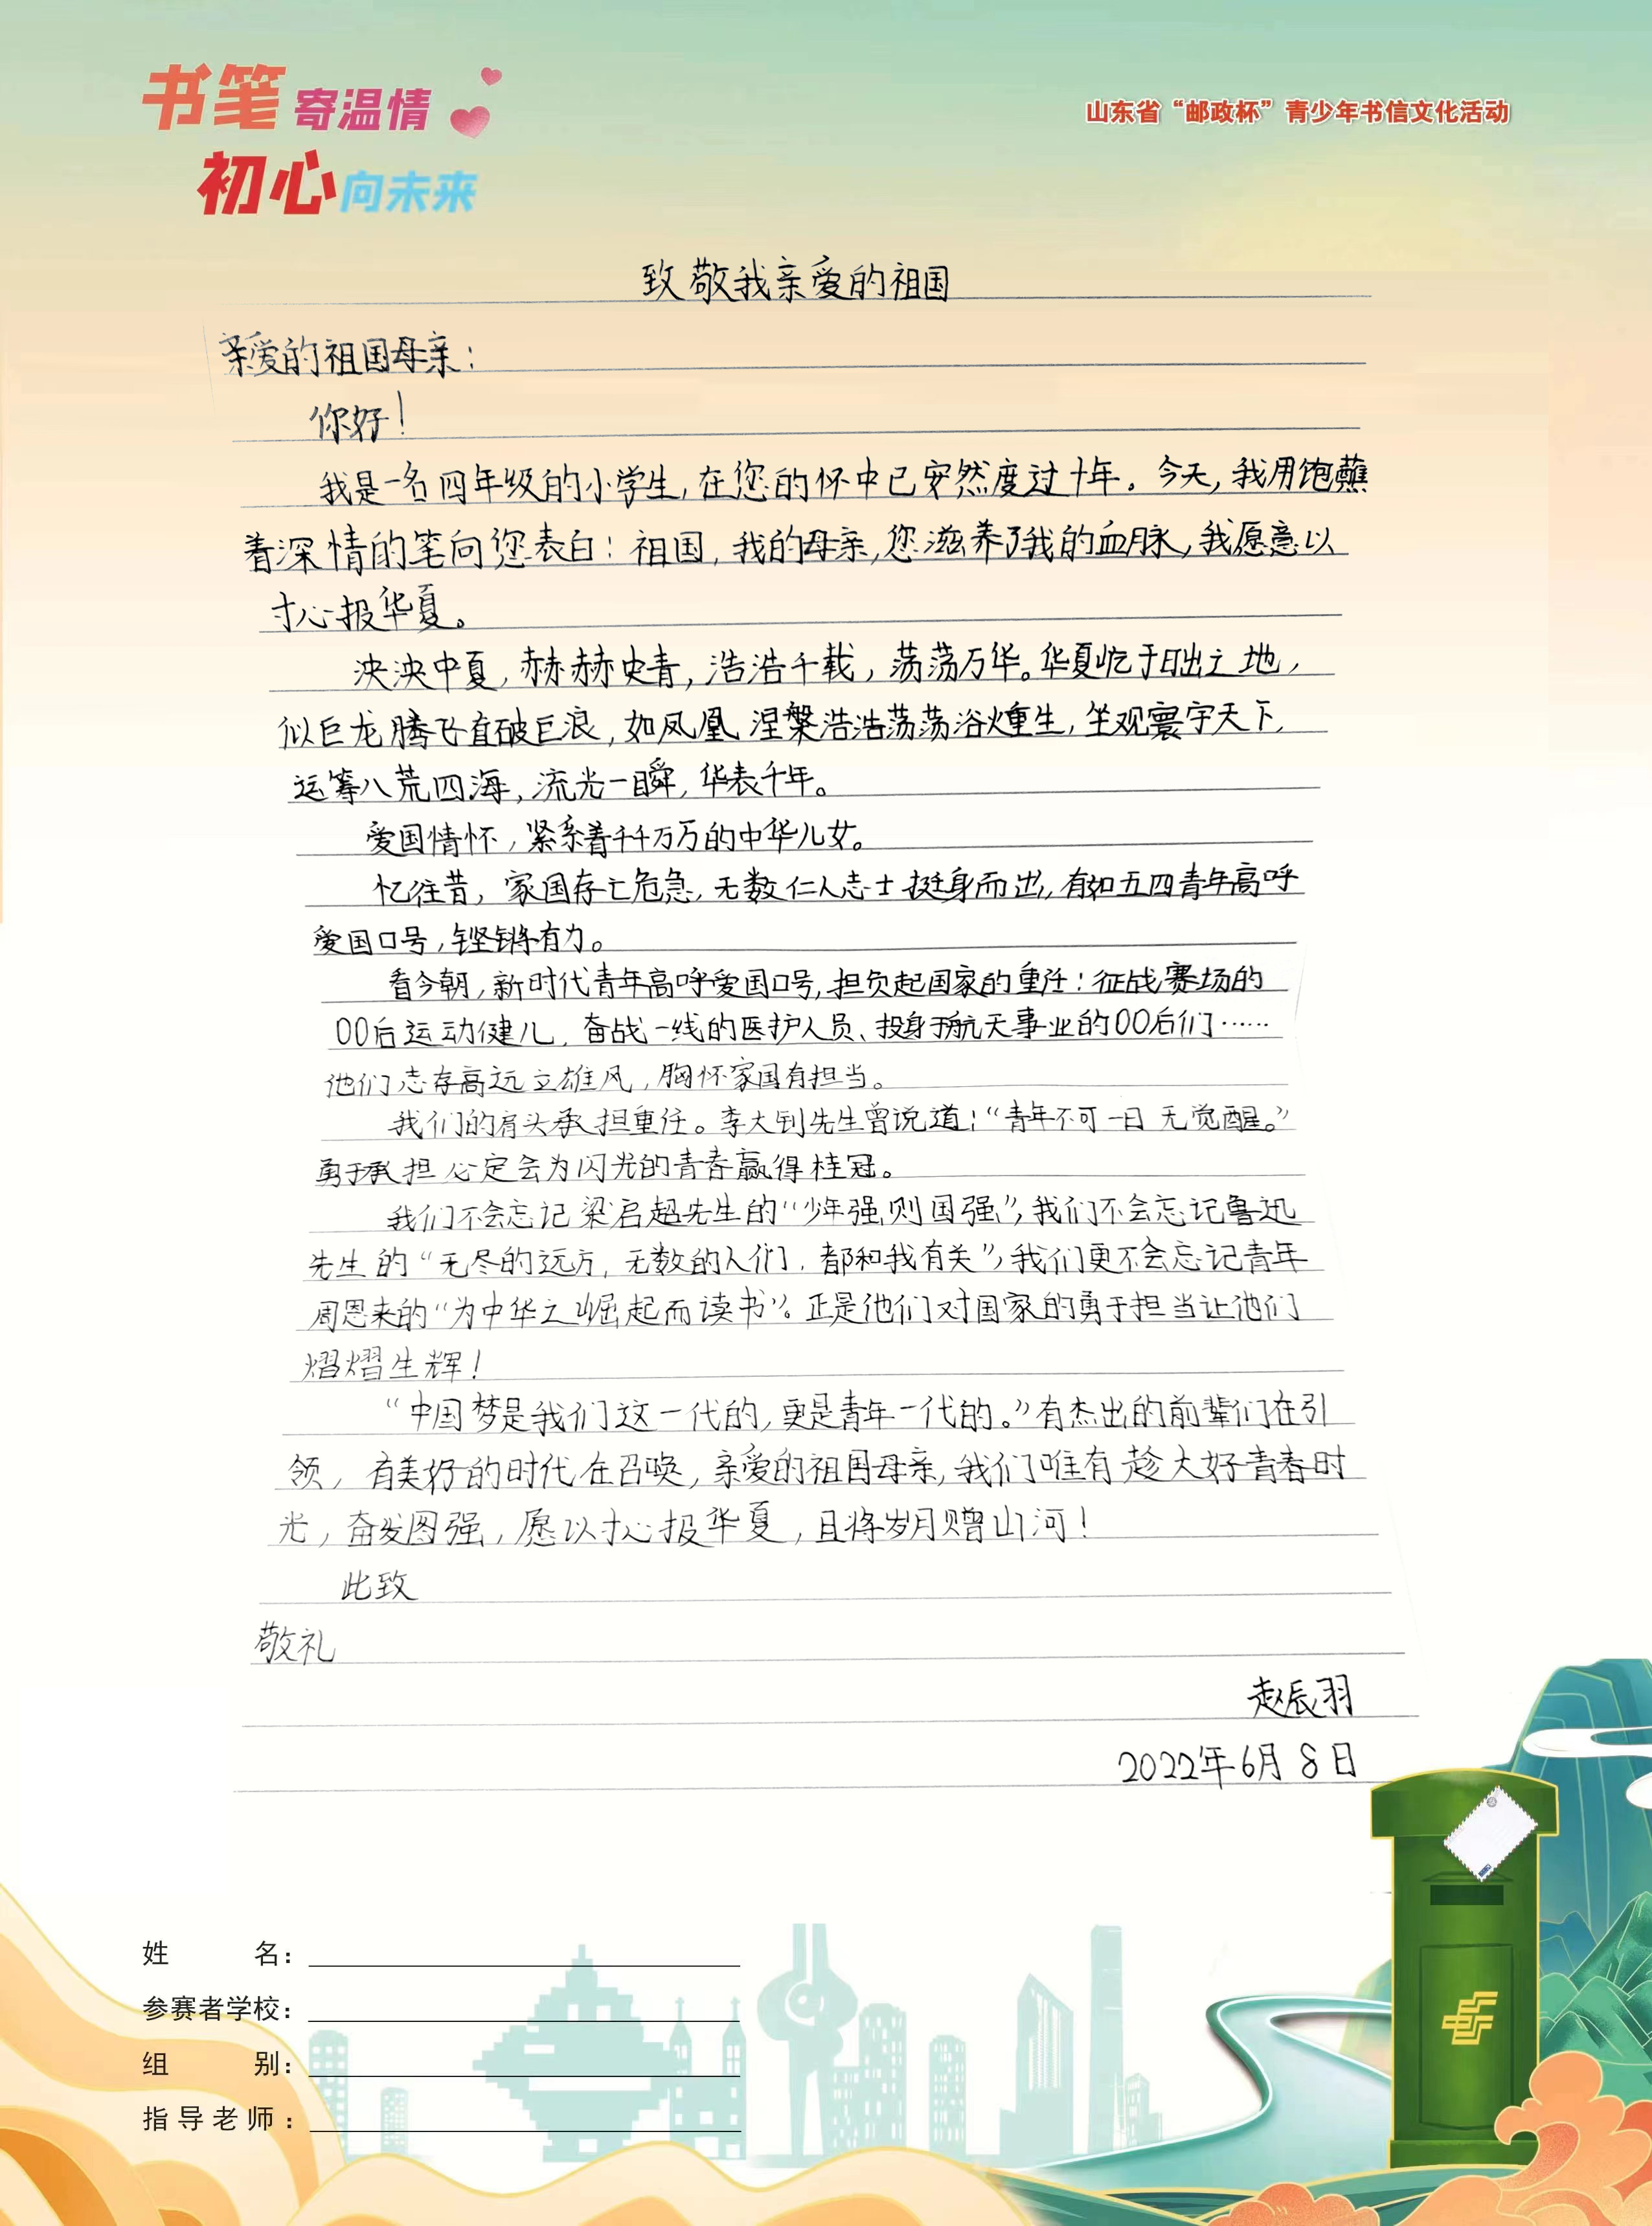 书笔寄温情
初心向未来
山东省“邮政杯”青少年书信文化活动
致敬我亲爱的祖国
亲爱的祖国母亲：
你好！
我是一名四年级的小学生，在您的怀中已安然度过十年。今天，我用饱蘸
着深情的笔向您表白：祖国，我的母亲，您滋养了我的血脉，我愿意以
寸心报华夏。
泱泱中夏，赫赫史青，浩浩千载，荡荡万华。华夏屹于日出之地，
似巨龙腾飞直破巨浪，如凤凰涅槃浩浩荡荡浴火重生，坐观寰宇天下，
运筹八荒四海，流光一瞬，华表千年。
爱国情怀，紧系着千千万万的中华儿女。
忆往昔，家国存亡危急，无数仁人志士挺身而出，有如五四青年高呼
爱国口号，铿锵有力。
看今朝，新时代青年高呼爱国口号，担负起国家的重任：征战赛场的
00后运动健儿、奋战一线的医护人员、投身于航天事业的00后们……
他们志存高远立雄风，胸怀家国有担当。
我们的肩头承担重任。李大钊先生曾说道：“青年不可一日无觉醒。”
勇于承担必定会为闪光的青春赢得桂冠。
我们不会忘记梁启超先生的“少年强则国强”，我们不会忘记鲁迅
先生的“无尽的远方，无数的人们，都和我有关”，我们更不会忘记青年
周恩来的“为中华之崛起而读书”。正是他们对国家的勇于担当让他们
熠熠生辉！
“中国梦是我们这一代的，更是青年一代的。”有杰出的前辈们在引
领，有美好的时代在召唤，亲爱的祖国母亲，我们唯有趁大好青春时
光，奋发图强，愿以寸心报华夏，且将岁月赠山河！
此致
敬礼
赵辰羽
2022年6月8日
姓名：
参赛者学校：
组别：
指导老师：